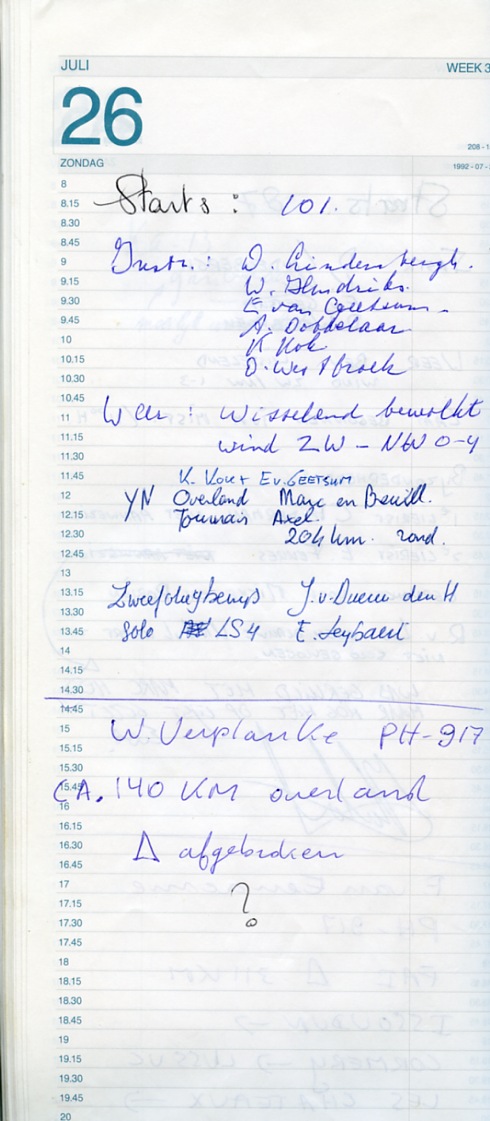 JULI WEEK 3
26
208 - 1
ZONDAG 1992 - 07 -
8
8.15 Starts : 101.
8.30
8.45
9 Instr. : D. Lindenbergh.
9.15 W. Hendriks.
9.30 E van Geetsum
9.45 A. Dobbelaar
10 K Kok
10.15 D. Westbroek
10.30
10.45 Weer : Wisselend bewolkt
11
11.15 wind ZW - NW 0-4
11.30
11.45 K. Kok + E v. GEETSUM
12 YN Overland Marc en
12.15 Tournais Axel.
12.30 204 km. rond.
12.45
13
13.15 Zweefvliegkamp J. v. Duern den H
13.30
13.45 Solo LS4 E. Seybaert
14
14.15
14.30
14.45
15 W. Verplanke PH-917
15.15
15.30
15.45 CA. 140 KM overland
16
16.15
16.30 Δ afgebroken
16.45
17
17.15 ?
17.30
17.45
18
18.15
18.30
18.45
19
19.15
19.30
19.45
20